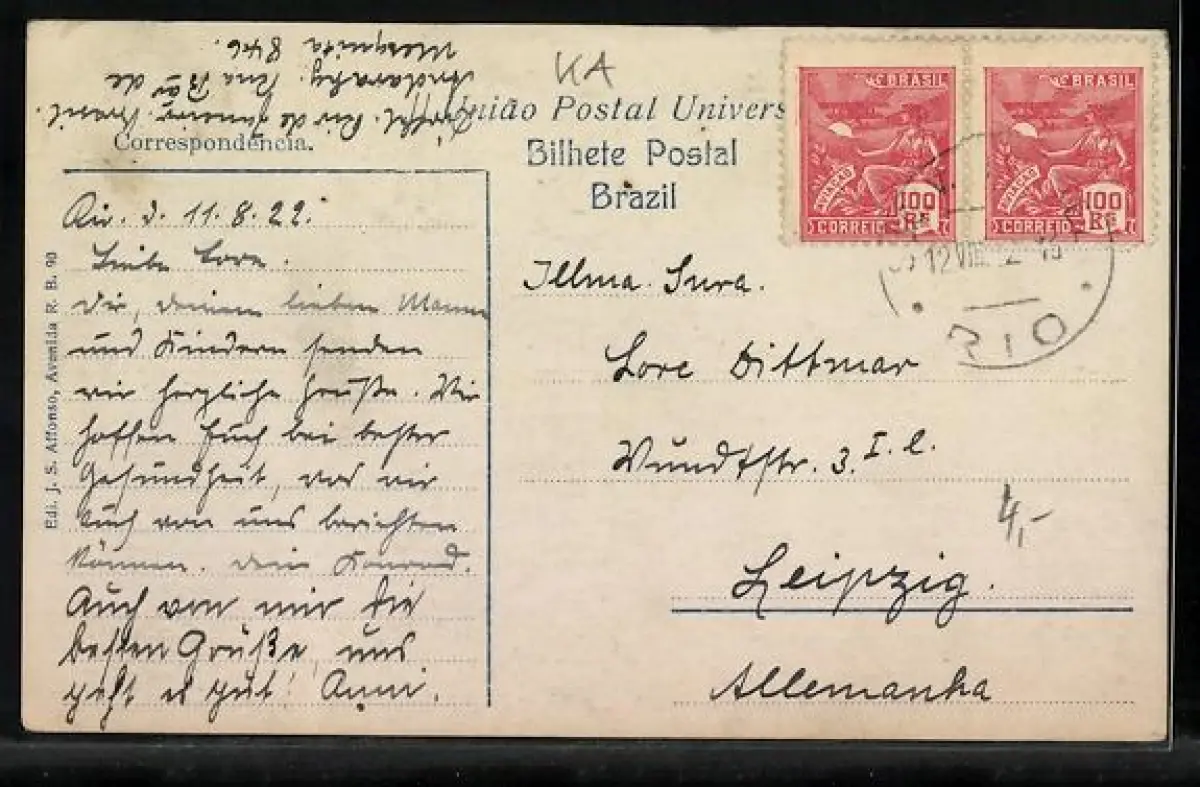 Mesquita 846.
Andarahy. Rua Barão de
Rio de Janeiro. Brasil.
KA
União Postal Univers
Bilhete Postal
Brazil
Correspondencia.
BRASIL
AVIAÇÃO
100
Rs
CORREIO
BRASIL
AVIAÇÃO
100
Rs
CORREIO
12 VIII
RIO
Edi. J. S. Affonso, Avenida R. B. 90
Rio. d. 11.8.22.
Liebe Lore.
Dir, deinem lieben Mann
und Kindern senden
wir herzliche Grüße. Wir
hoffen Euch bei bester
Gesundheit, was wir
auch von uns berichten
können. Dein Konrad.
Auch von mir die
besten Grüße, uns
geht es gut! Anni.
Illma. Snra.
Lore Dittmar
Wundtstr. 3. I. l.
4,-
Leipzig.
Allemanha